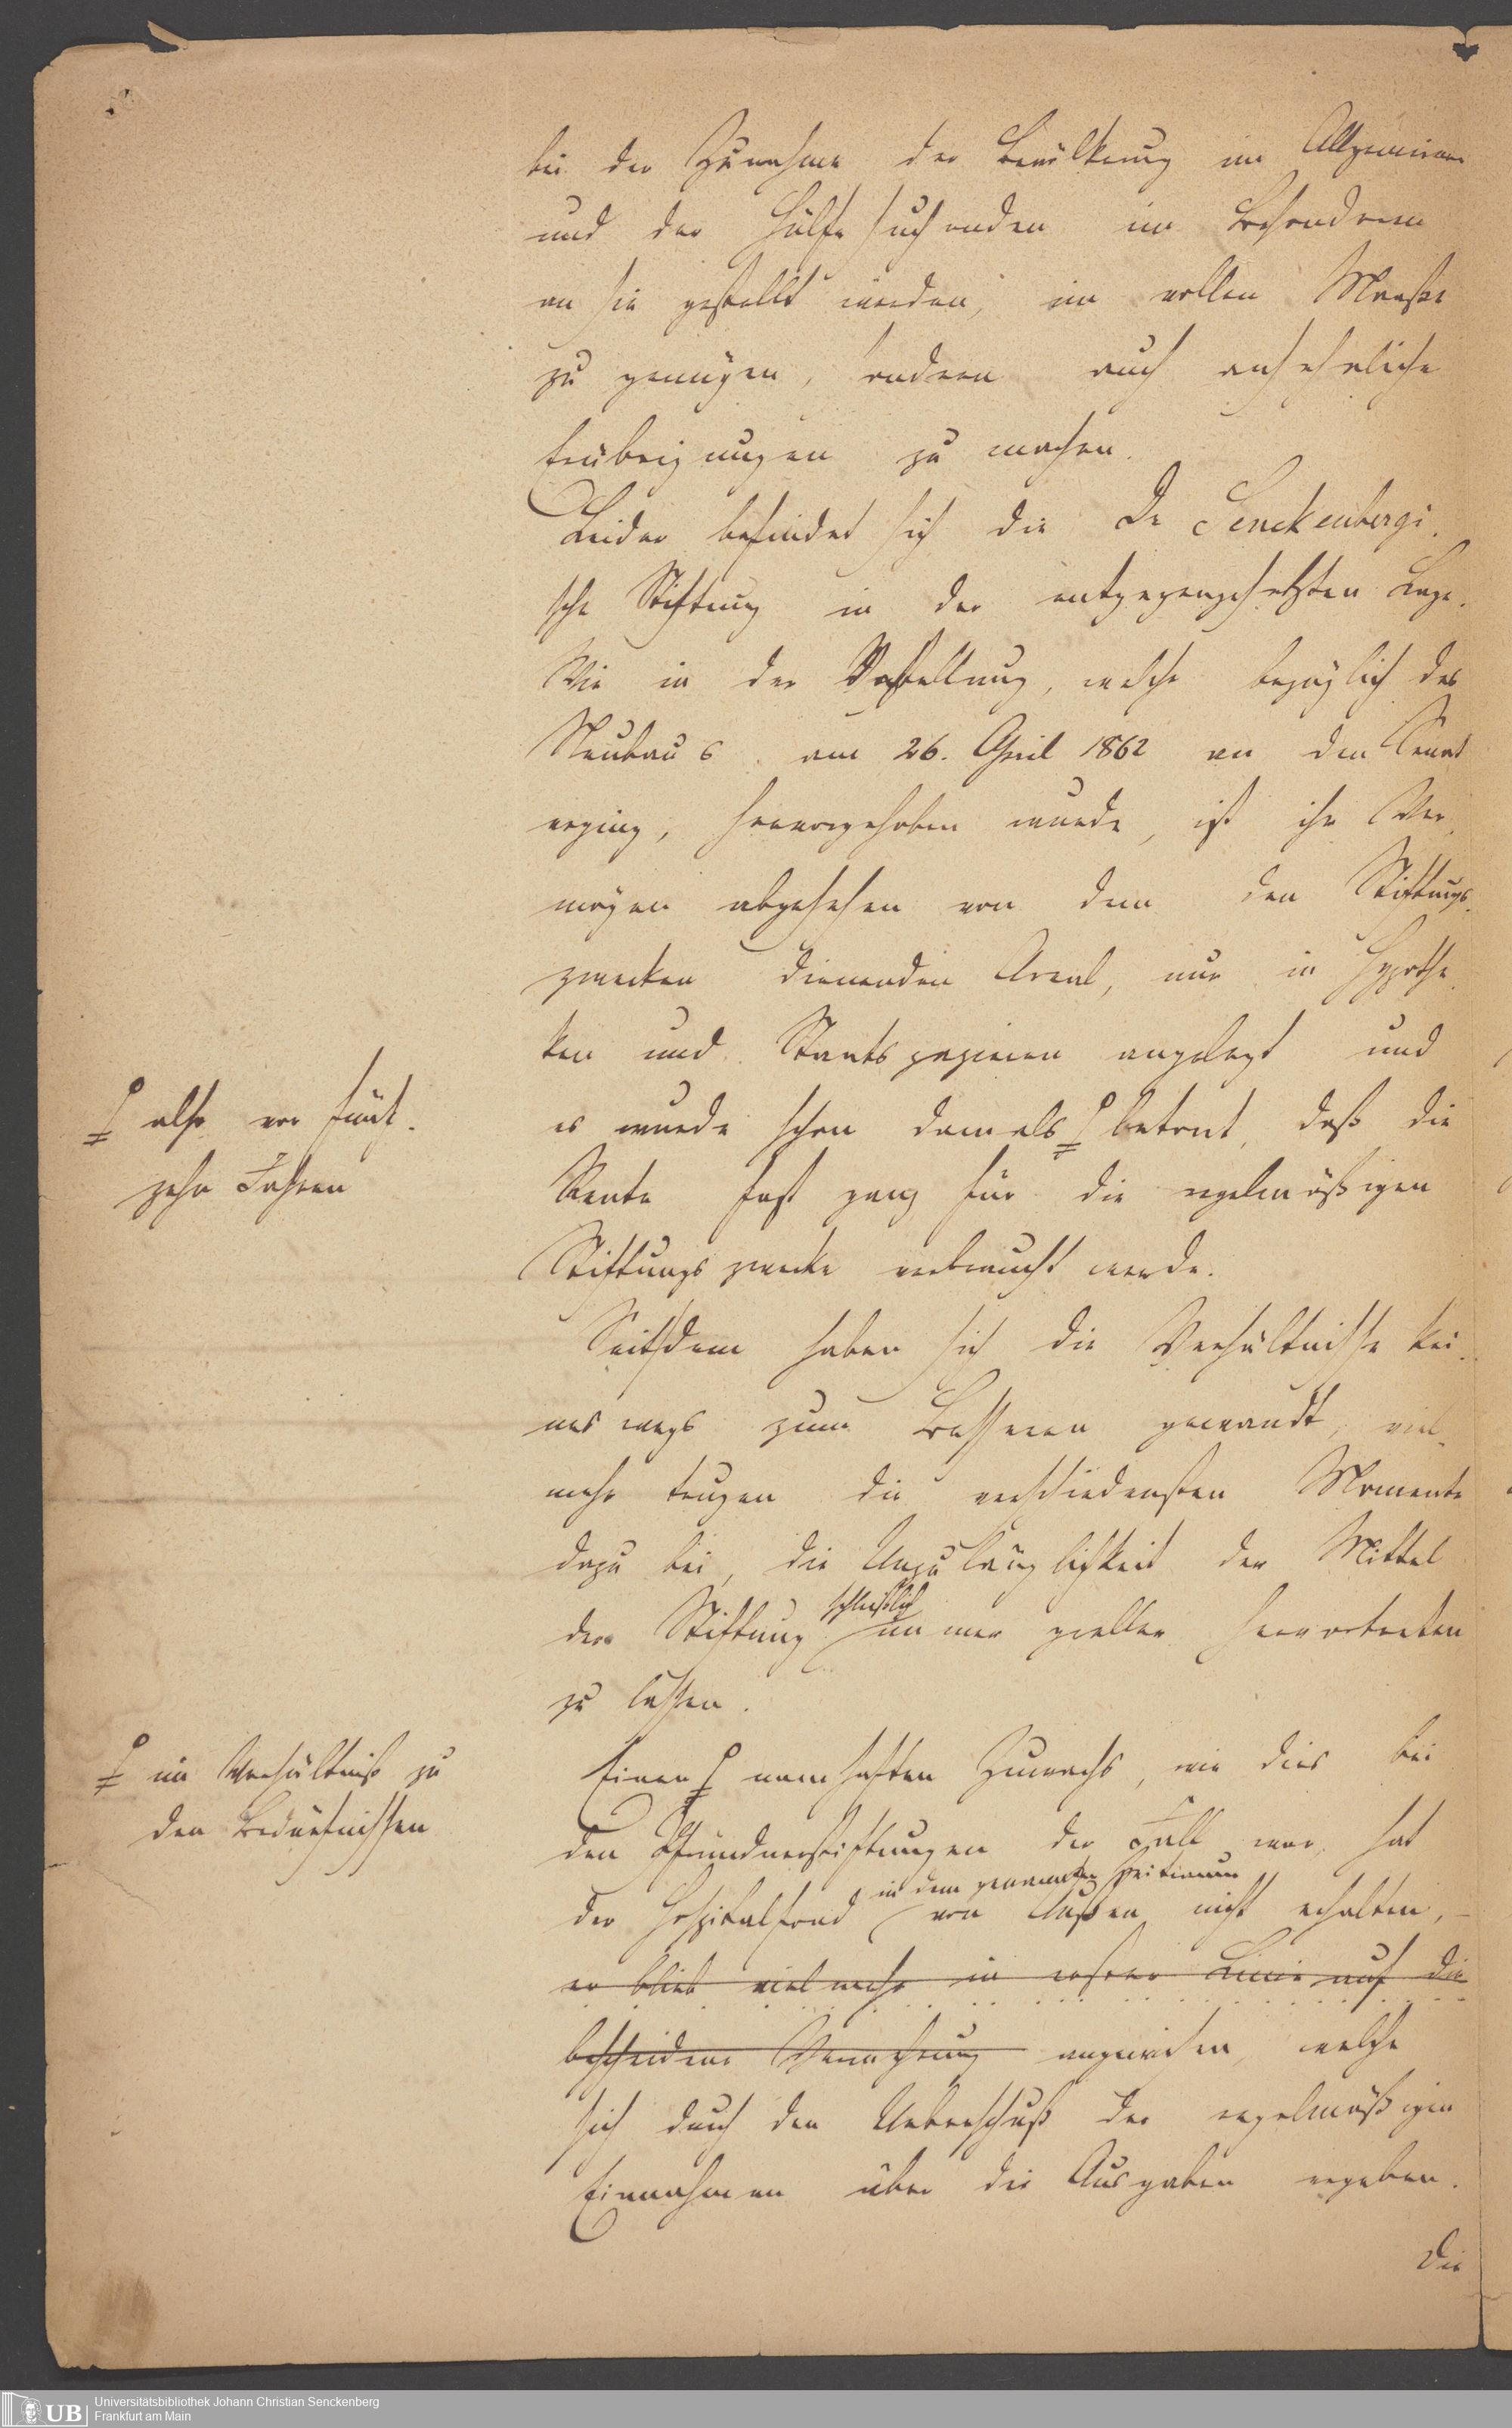 bei der Zunahme der Bevölkerung im Allgemeinen
und der Hülfesuchenden im Besonderen
an sie gestellt werden, im vollen Maaße
zu genügen, sondern auch ansehnliche
Erübrigungen zu machen.
Leider befindet sich die Dr Senckenbergi-
sche Stiftung in der entgegengesetzten Lage.
Wie in der Vorstellung, welche bezüglich des
Neubaus am 26. April 1862 an den Senat
erging, hervorgehoben wurde, ist ihr Ver-
mögen abgesehen von dem den Stiftungs-
zwecken dienenden Areal, nur in Hypothe-
ken und Staatspapieren angelegt und
es wurde schon damals betont, daß die
also vor fünf-
zehn Jahren
Rente fast ganz für die regelmäßigen
Stiftungszwecke verbraucht werde.
Seitdem haben sich die Verhältnisse kei-
neswegs zum Besseren gewandt, viel-
mehr trugen die verschiedensten Momente
dazu bei, die Unzulänglichkeit der Mittel
schließlich
der Stiftung immer greller hervortreten
zu lassen.
Einen namhaften Zuwachs, wie dies bei
im Verhältniß zu
den Bedürfnissen
den Pfründnerstiftungen der Fall war, hat
in dem genannten Zeitraum
der Hospitalfond von Außen nicht erhalten,
er blieb vielmehr in erster Linie auf die
bescheidene Vermehrung angewiesen, welche
sich durch den Ueberschuß der regelmäßigen
Einnahmen über die Ausgaben ergeben.
Die
UB
Universitätsbibliothek Johann Christian Senckenberg
Frankfurt am Main